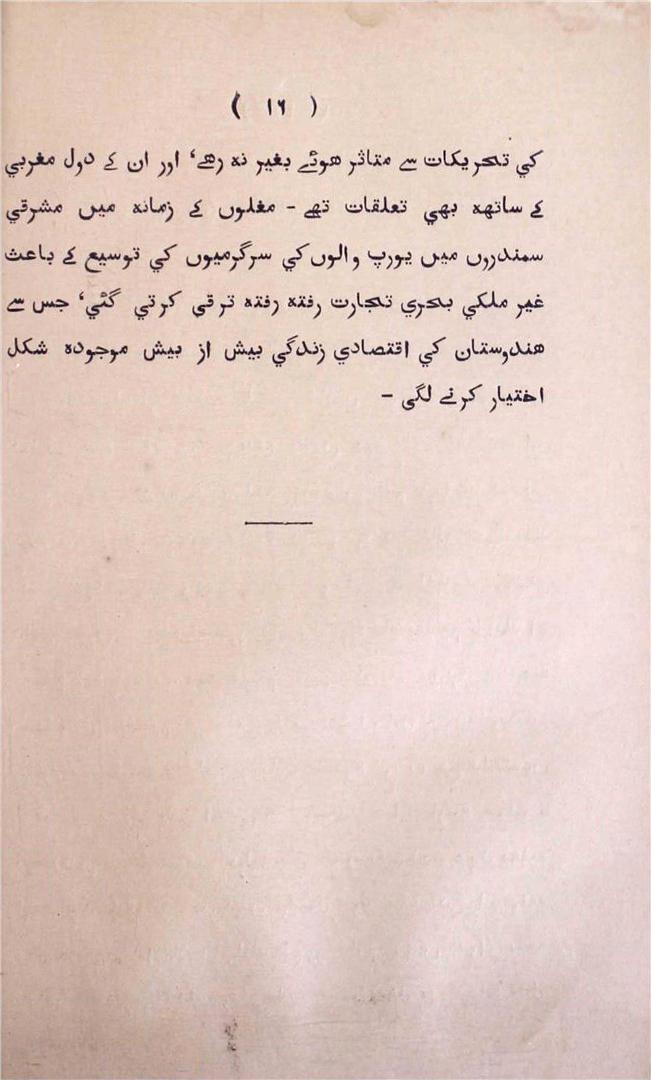 ( ۱۶ )
کي تحریکات سے متاثر هوئے بغیر نه رهے، اور ان کے دول مغربي
کے ساتهه بهي تعلقات تهے - مغلوں کے زمانه میں مشرقي
سمندروں میں یورپ والوں کي سرگرمیوں کي توسیع کے باعث
غیر ملکي بحري تجارت رفته رفته ترقي کرتي گئي، جس سے
هندوستان کي اقتصادي زندگي بیش از بیش موجوده شکل
اختیار کرنے لگی -